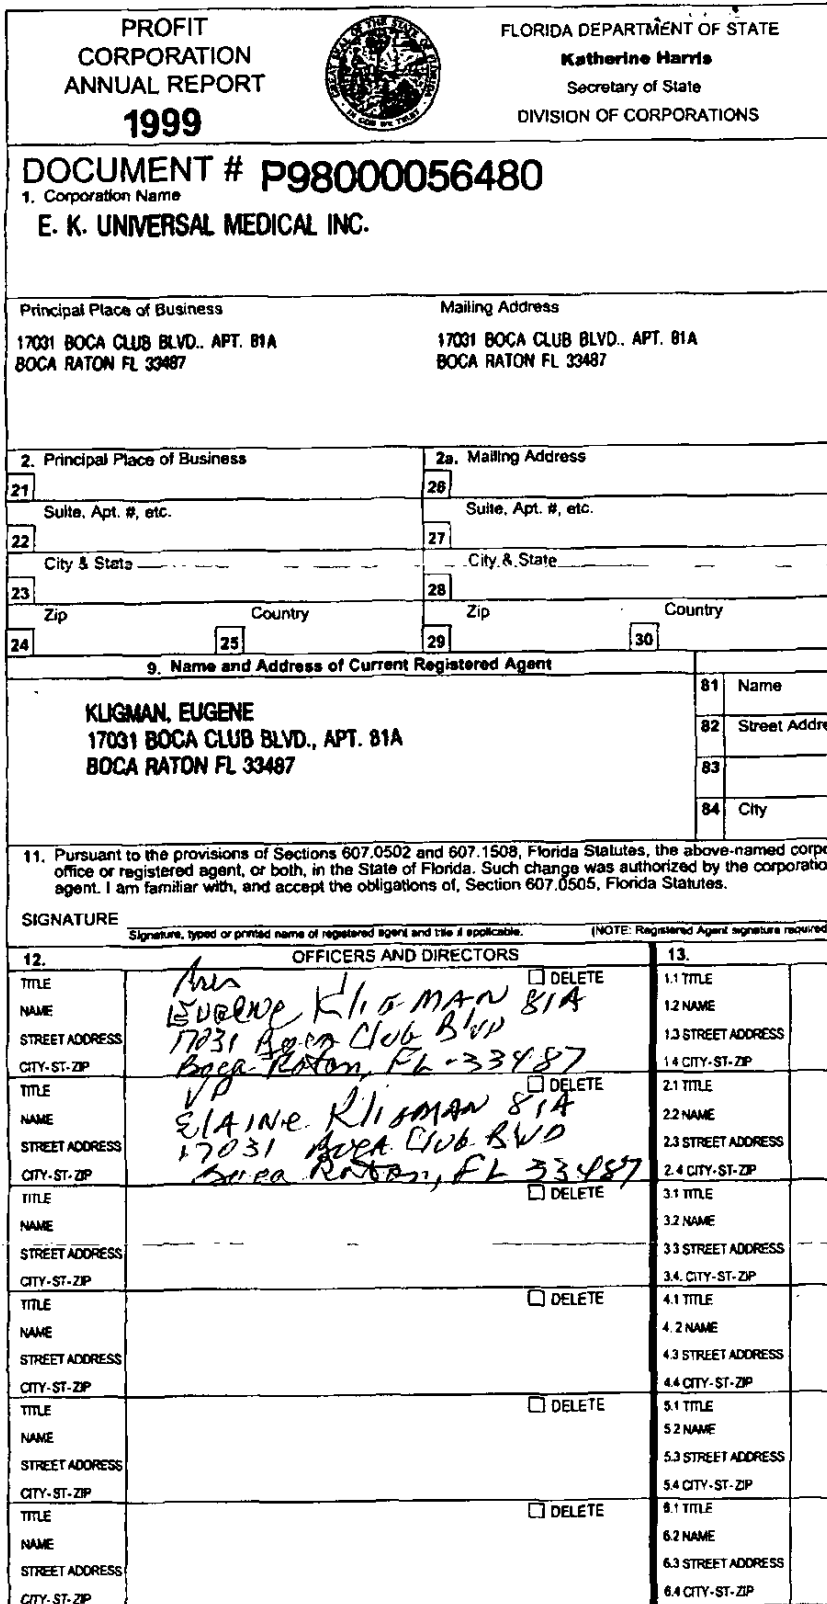 PROFIT
CORPORATION
ANNUAL REPORT
1999
FLORIDA DEPARTMENT OF STATE
Katherine Harris
Secretary of State
DIVISION OF CORPORATIONS
DOCUMENT # P98000056480
1. Corporation Name
E. K. UNIVERSAL MEDICAL INC.
Principal Place of Business
17031 BOCA CLUB BLVD., APT. 81A
BOCA RATON FL 33487
Mailing Address
17031 BOCA CLUB BLVD., APT. 81A
BOCA RATON FL 33487
2. Principal Place of Business
2a. Mailing Address
21
26
Suite, Apt. #, etc.
Suite, Apt. #, etc.
22
27
City & State
City & State
23
28
Zip
Country
Zip
Country
24
25
29
30
9. Name and Address of Current Registered Agent
KLIGMAN, EUGENE
17031 BOCA CLUB BLVD., APT. 81A
BOCA RATON FL 33487
81 Name
82 Street Addre
83
84 City
11. Pursuant to the provisions of Sections 607.0502 and 607.1508, Florida Statutes, the above-named corpo
office or registered agent, or both, in the State of Florida. Such change was authorized by the corporatio
agent. I am familiar with, and accept the obligations of, Section 607.0505, Florida Statutes.
SIGNATURE
Signature, typed or printed name of registered agent and title if applicable.
(NOTE: Registered Agent signature required
12. OFFICERS AND DIRECTORS
13.
TITLE Pres DELETE
NAME Eugene Kligman 81A
STREET ADDRESS 17031 Boca Club Blvd
CITY-ST-ZIP Boca Raton, FL-33487
1.1 TITLE
1.2 NAME
1.3 STREET ADDRESS
1.4 CITY-ST-ZIP
TITLE VP DELETE
NAME Elaine Kligman 81A
STREET ADDRESS 17031 Boca Club Blvd
CITY-ST-ZIP Boca Raton, FL 33487
2.1 TITLE
2.2 NAME
2.3 STREET ADDRESS
2.4 CITY-ST-ZIP
TITLE DELETE
NAME
STREET ADDRESS
CITY-ST-ZIP
3.1 TITLE
3.2 NAME
3.3 STREET ADDRESS
3.4. CITY-ST-ZIP
TITLE DELETE
NAME
STREET ADDRESS
CITY-ST-ZIP
4.1 TITLE
4.2 NAME
4.3 STREET ADDRESS
4.4 CITY-ST-ZIP
TITLE DELETE
NAME
STREET ADDRESS
CITY-ST-ZIP
5.1 TITLE
5.2 NAME
5.3 STREET ADDRESS
5.4 CITY-ST-ZIP
TITLE DELETE
NAME
STREET ADDRESS
CITY-ST-ZIP
6.1 TITLE
6.2 NAME
6.3 STREET ADDRESS
6.4 CITY-ST-ZIP